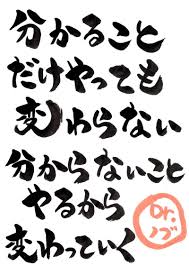 分かること
だけやっても
変わらない
分からないこと
やるから
変わっていく
Dr.
ノブ